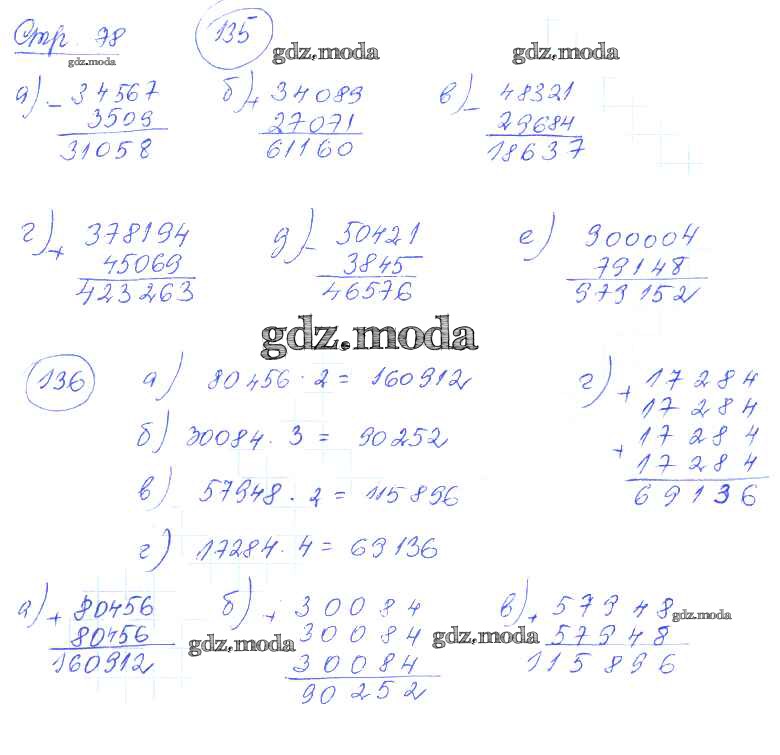 Стр. 78 135
gdz.moda gdz.moda gdz.moda
а) - 34567 б) + 34089 в) - 48321
3509 27071 29684
31058 61160 18637
г) + 378194 д) - 50421 е) 900004
45069 3845 79148
423263 46576 979152
gdz.moda
136 а) 80456 · 2 = 160912 г) + 17284
17284
б) 30084 · 3 = 90252 + 17284
17284
в) 57948 · 2 = 115896 69136
г) 17284 · 4 = 69136
а) + 80456 б) + 30084 в) + 57948 gdz.moda
80456 gdz.moda 30084 gdz.moda 57948
160912 30084 115896
90252